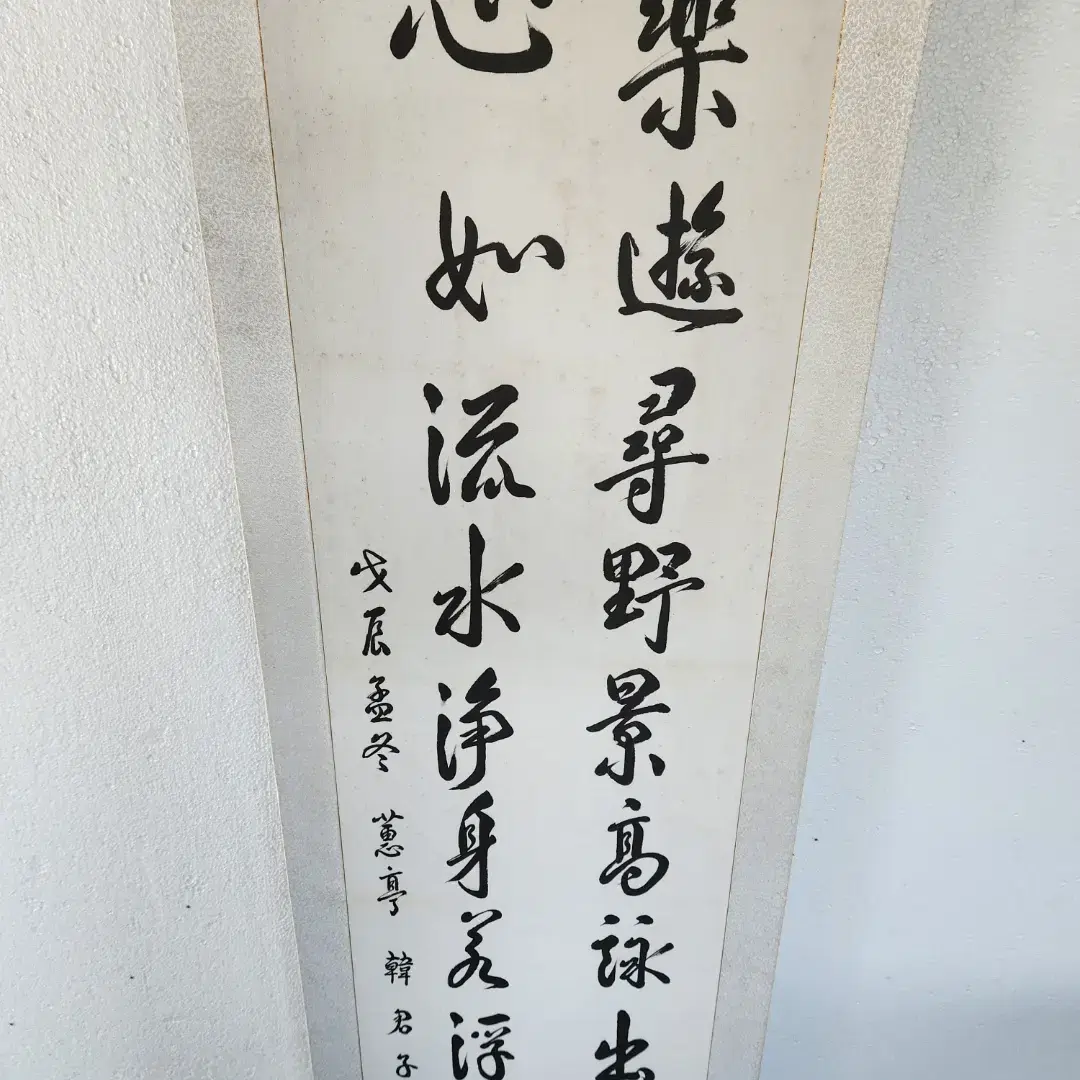 樂遊尋野景高詠出
心如流水淨身若浮
戊辰孟冬 蕙亭 韓君子